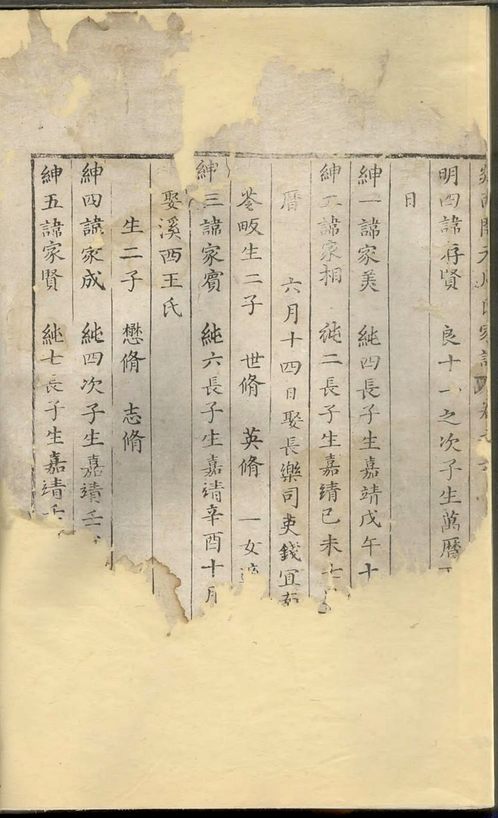 氏家
明四諱存賢 良十一之次子生萬曆
日
紳一諱家美 純四長子生嘉靖戊午十
紳二諱家相 純二長子生嘉靖己未七
曆 六月十四日娶長樂司吏錢宜
荃畈生二子 世脩 英脩 一女適
紳三諱家賓 純六長子生嘉靖辛酉十月
娶溪西王氏
生二子 懋脩 志脩
紳四諱家成 純四次子生嘉靖壬
紳五諱家賢 純七長子生嘉靖壬